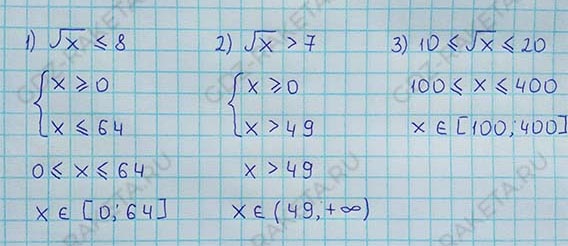 1) √x ≤ 8
{ x ⩾ 0
x ≤ 64
0 ≤ x ≤ 64
x ∈ [0; 64]
2) √x > 7
{ x ⩾ 0
x > 49
x > 49
x ∈ (49; +∞)
3) 10 ≤ √x ≤ 20
100 ≤ x ≤ 400
x ∈ [100; 400]
GDZ-RAKETA.RU